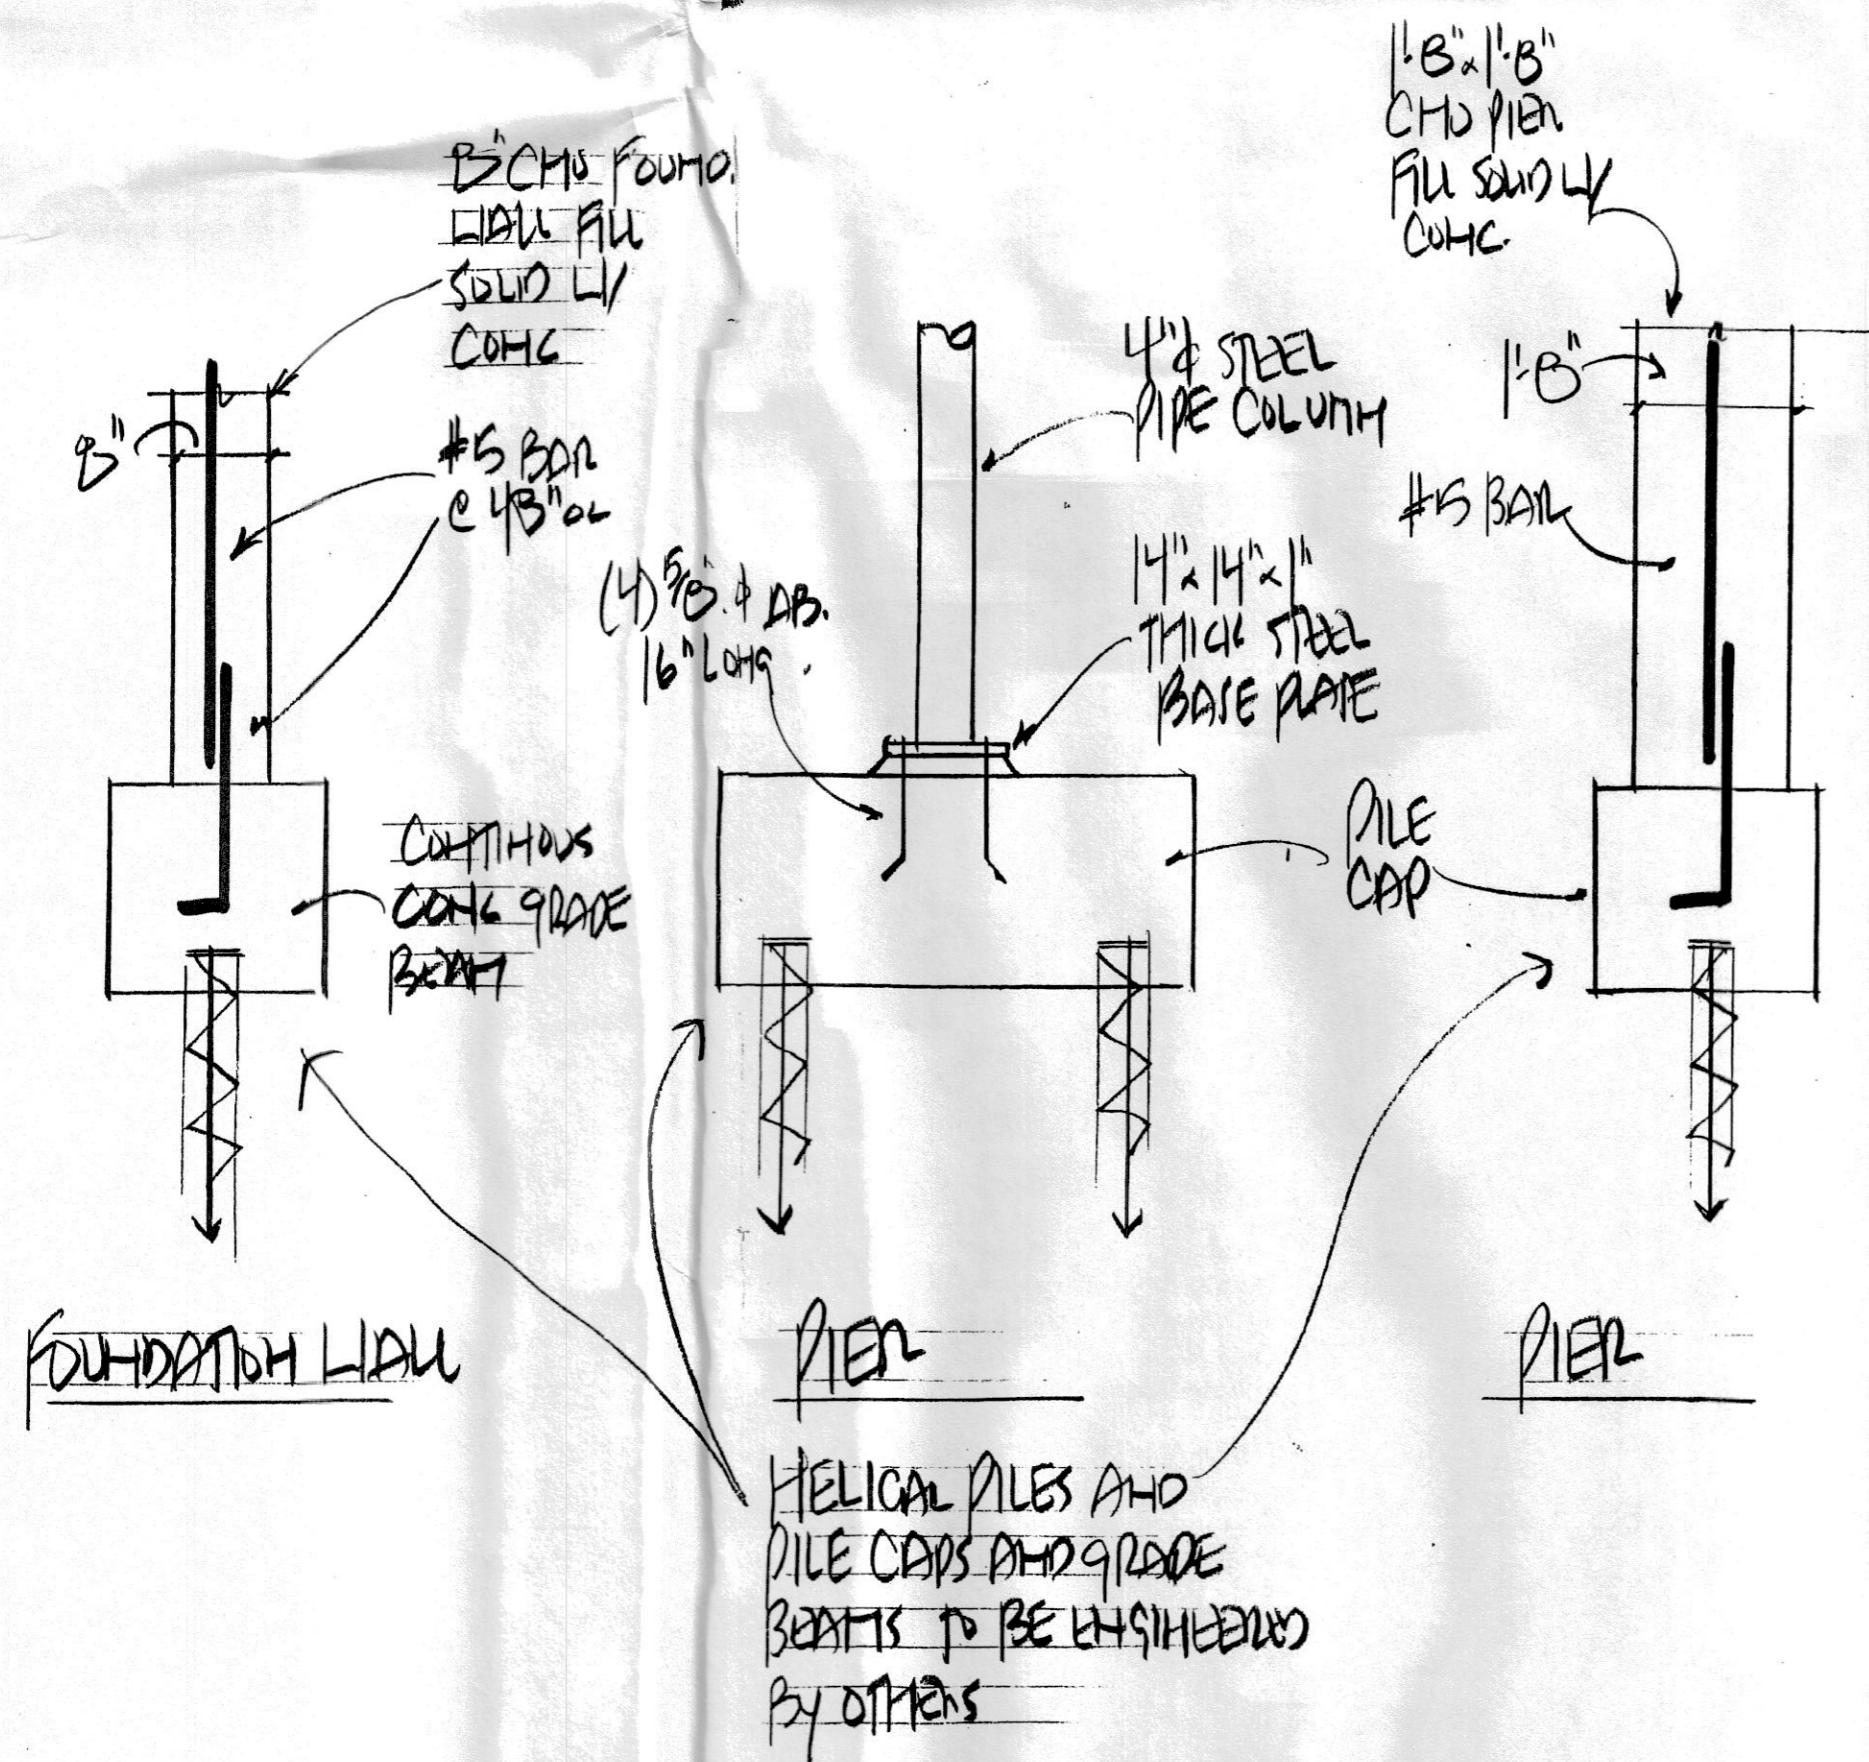 8" CMU FOUND.
WALL FILL
SOLID W/
CONC
8"
#5 BAR
@ 48" OC
CONTINOUS
CONC GRADE
BEAM
FOUNDATION WALL
(4) 5/8" ϕ AB.
16" LONG
4" ϕ STEEL
PIPE COLUMN
14" x 14" x 1"
THICK STEEL
BASE PLATE
PILE
CAP
PIER
1'-8" x 1'-8"
CMU PIER
FILL SOLID W/
CONC.
1'-8"
#5 BAR
PIER
HELICAL PILES AND
PILE CAPS AND GRADE
BEAMS TO BE ENGINEERED
BY OTHERS